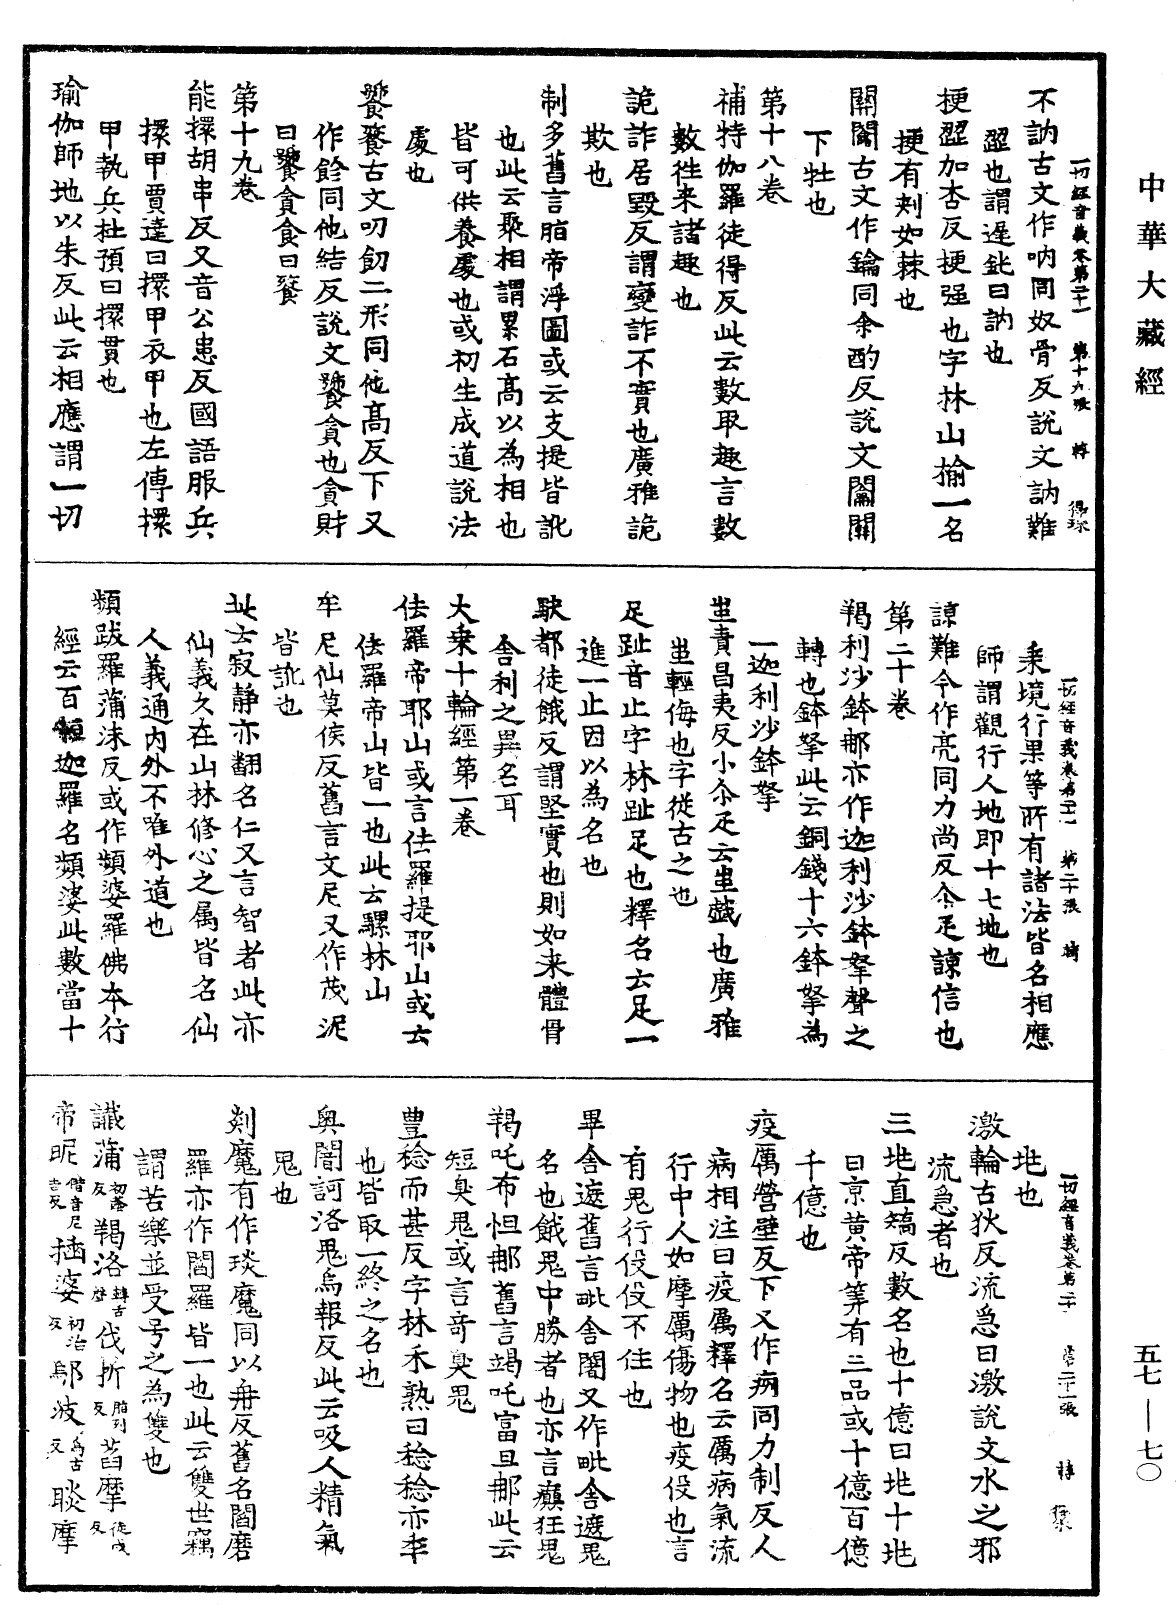 中華大藏經
一切經音義卷第二十一 第十九張 轉
不訥古文作吶同奴骨反說文訥難
澀也謂遲鈍曰訥也
梗澀加杏反梗强也字林山榆一名
梗有刾如棘也
關闔古文作鑰同余酌反說文闔關
下牡也
第十八卷
補特伽羅徒得反此云數取趣言數
數徃来諸趣也
詭詐居毀反謂變詐不實也廣雅詭
欺也
制多舊言脂帝浮圖或云支提皆訛
也此云聚相謂累石高以為相也
皆可供養處也或初生成道說法
處也
饕餮古文叨飻二形同他高反下又
作飻同他結反說文饕貪也貪財
曰饕貪食曰餮
第十九卷
能擐胡串反又音公患反國語服兵
擐甲賈逵曰擐甲衣甲也左傳擐
甲執兵杜預曰擐貫也
瑜伽師地以朱反此云相應謂一切
一切經音義卷第二十一 第二十張 轉
乘境行果等所有諸法皆名相應
師謂觀行人地即十七地也
諒難今作亮同力尚反尒疋諒信也
第二十卷
羯利沙鉢那亦作迦利沙鉢拏聲之
轉也鉢拏此云銅錢十六鉢拏為
一迦利沙鉢拏
蚩責昌夷反小尒疋云蚩戲也廣雅
蚩輕侮也字從古之也
足趾音止字林趾足也釋名云足一
進一止因以為名也
馱都徒餓反謂堅實也則如来體骨
舍利之異名耳
大乘十輪經第一卷
佉羅帝耶山或言佉羅提耶山或云
佉羅帝山皆一也此云騾林山
牟尼仙莫侯反舊言文尼又作茂泥
皆訛也
此云寂静亦翻名仁又言智者此亦
仙義久在山林修心之属皆名仙
人義通内外不唯外道也
頻跋羅蒲沫反或作頻婆羅佛本行
經云百 迦羅名頻婆此數當十
一切經音義卷第二十一 第二十一張 轉
地也
激輪古狄反流急曰激說文水之邪
流急者也
三垗直矯反數名也十億曰垗十垗
曰京黃帝筭有三品或十億百億
千億也
疫厲營壁反下又作痢同力制反人
病相注曰疫厲釋名云厲病氣流
行中人如摩厲傷物也疫役也言
有鬼行役役不住也
畢舍遮舊言毗舍闍又作毗舍遮鬼
名也餓鬼中勝者也亦言癲狂鬼
羯吒布怛那舊言竭吒富且那此云
短臭鬼或言奇臭鬼
豊稔而甚反字林禾熟曰稔稔亦年
也皆取一終之名也
奥闇訶洛鬼烏報反此云吸人精氣
鬼也
剡魔有作琰魔同以冉反舊名閻磨
羅亦作閻羅皆一也此云雙世竊
謂苦樂並受号之為雙也
讖蒲 羯洛 伐折 萏摩
帝昵 插婆 鄔波 睒摩
五七—七〇